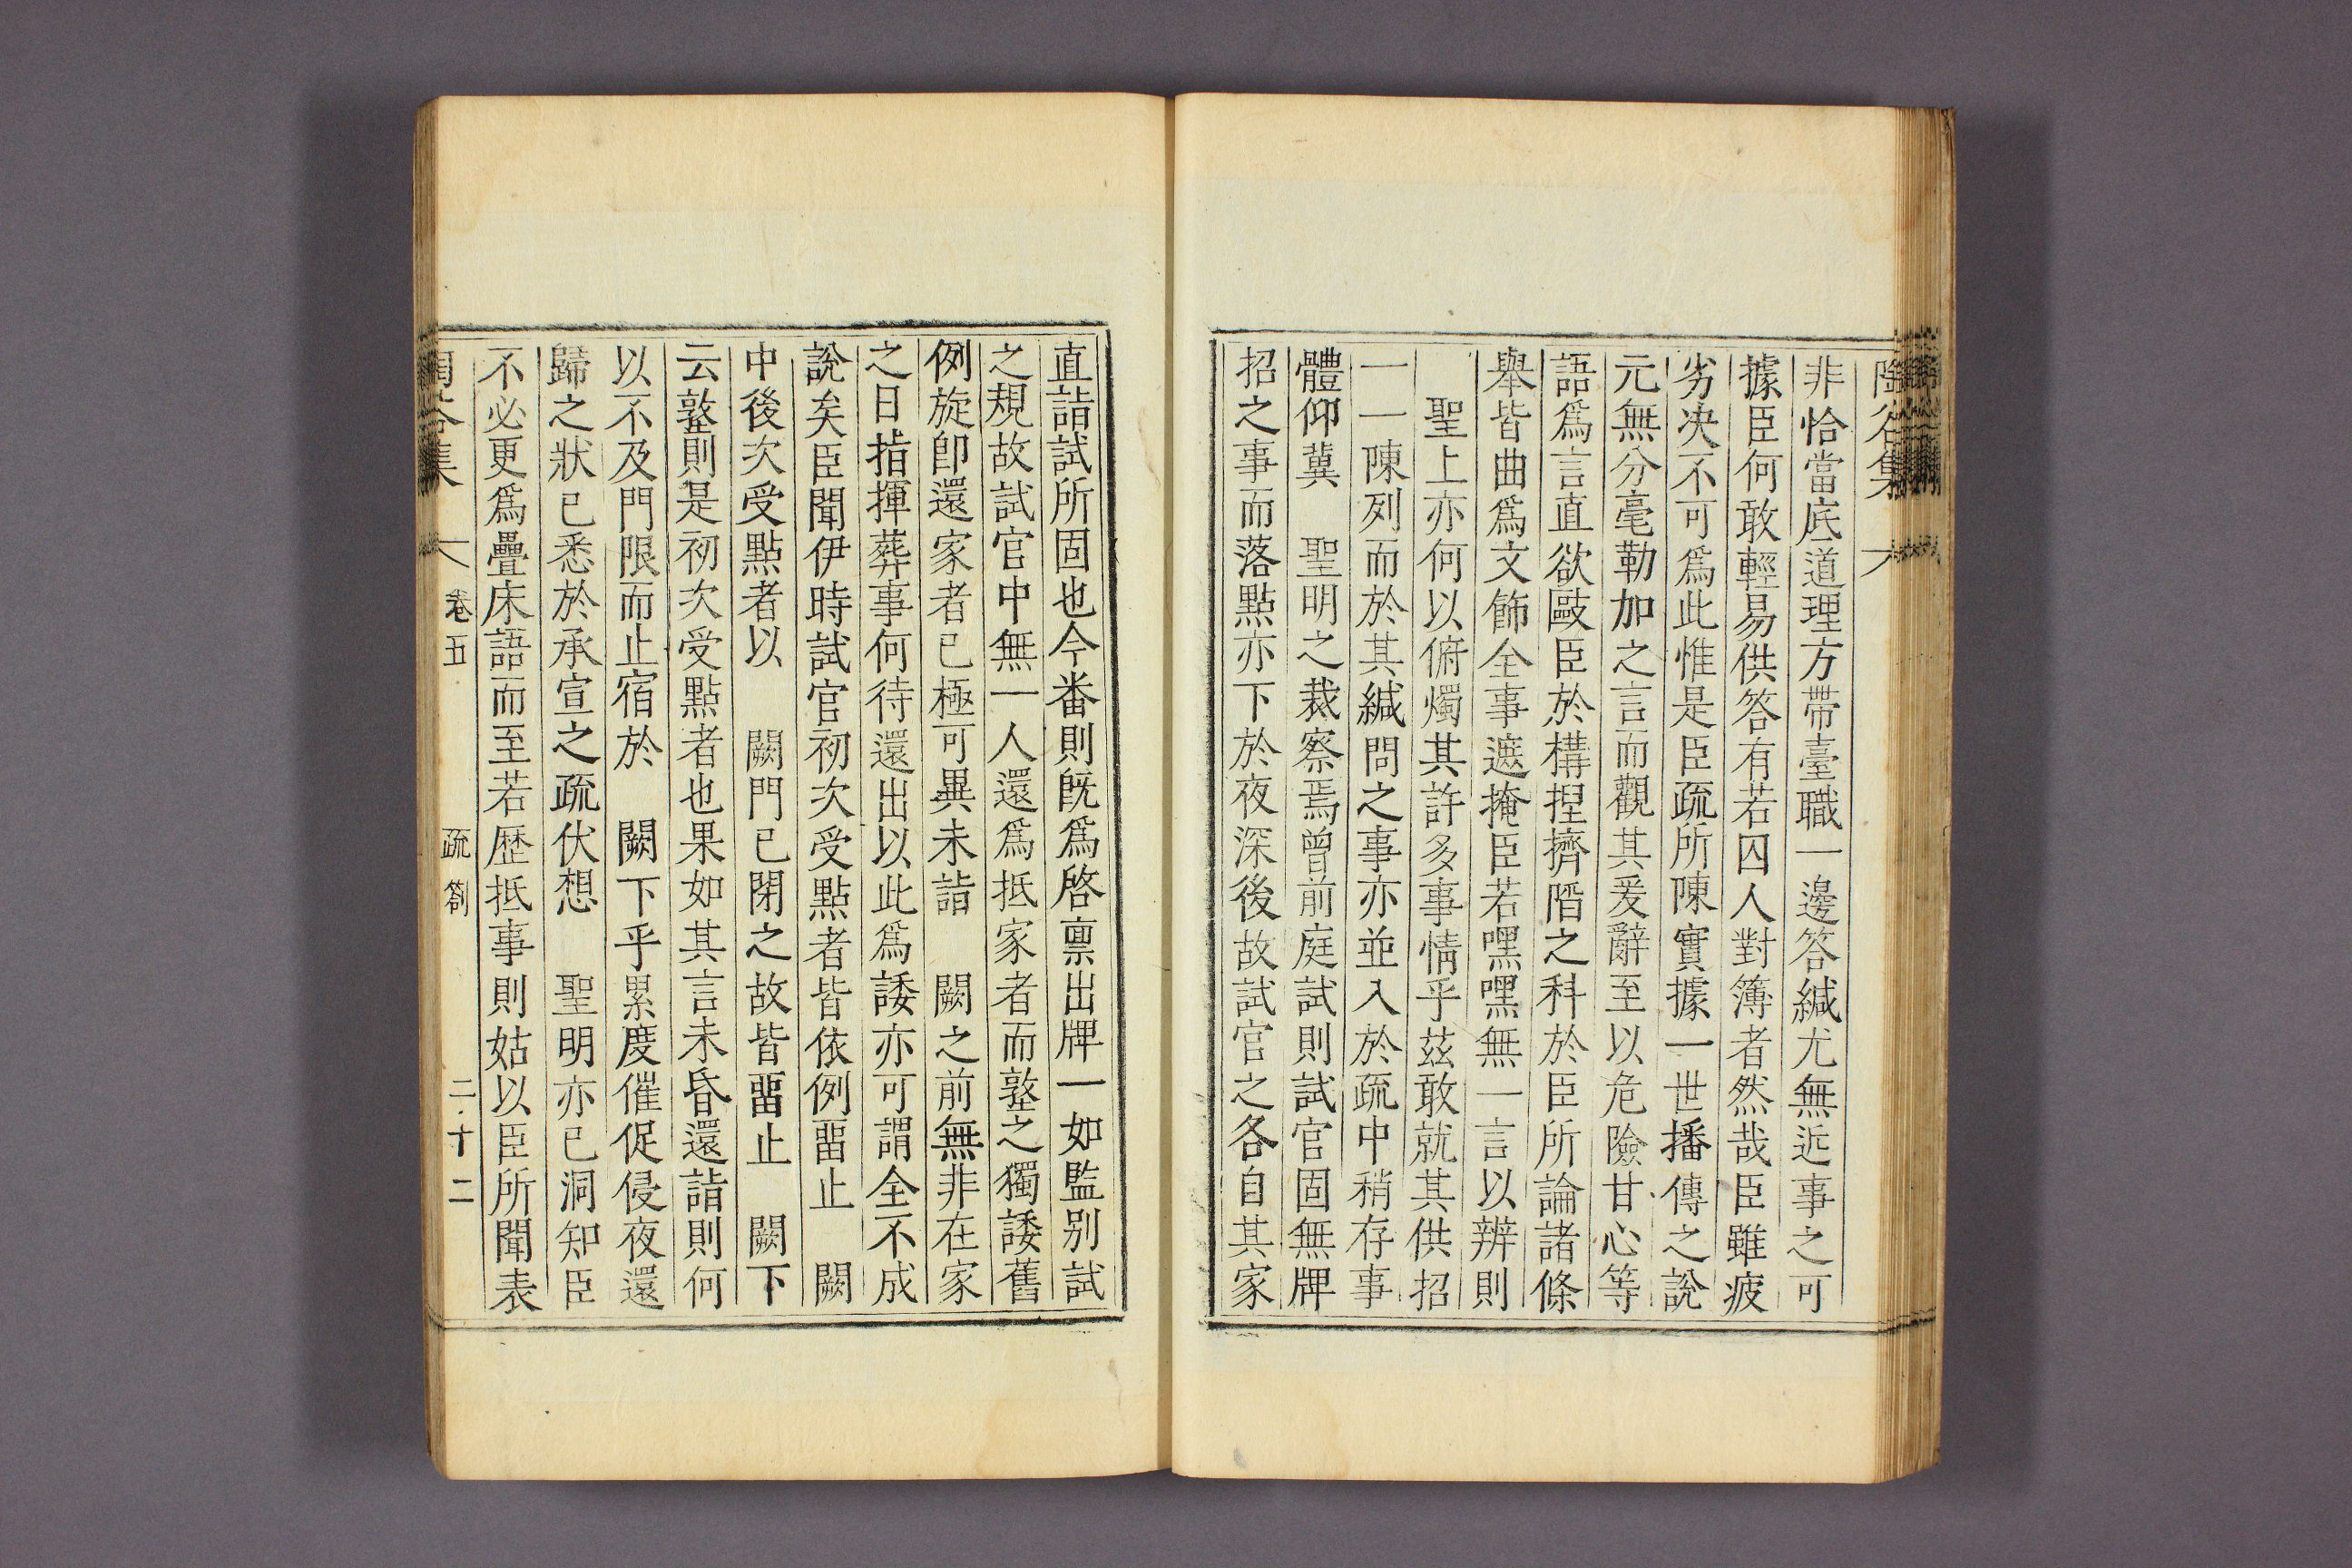 陶谷集
非恰當底道理方帶臺職一邊答緘尤無近事之可
據臣何敢輕易供答有若囚人對簿者然哉臣雖疲
劣决不可爲此惟是臣疏所陳實據一世播傳之說
元無分毫勒加之言而觀其爰辭至以危險甘心等
語爲言直欲敺臣於構捏擠陷之科於臣所論諸條
舉皆曲爲文飾全事遮掩臣若嘿嘿無一言以辨則
聖上亦何以俯燭其許多事情乎玆敢就其供招
一一陳列而於其緘問之事亦並入於疏中稍存事
體仰冀 聖明之裁察焉曾前庭試則試官固無牌
招之事而落點亦下於夜深後故試官之各自其家
直詣試所固也今番則旣爲啓禀出牌一如監別試
之規故試官中無一人還爲抵家者而鏊之獨諉舊
例旋卽還家者已極可異未詣 闕之前無非在家
之日指揮葬事何待還出以此爲諉亦可謂全不成
說矣臣聞伊時試官初次受點者皆依例畱止 闕
中後次受點者以 闕門已閉之故皆畱止 闕下
云鏊則是初次受點者也果如其言未昏還詣則何
以不及門限而止宿於 闕下乎累度催促侵夜還
歸之狀已悉於承宣之疏伏想 聖明亦已洞知臣
不必更爲疊床語而至若歷抵事則姑以臣所聞表
陶谷集 卷五 疏箚 二十二